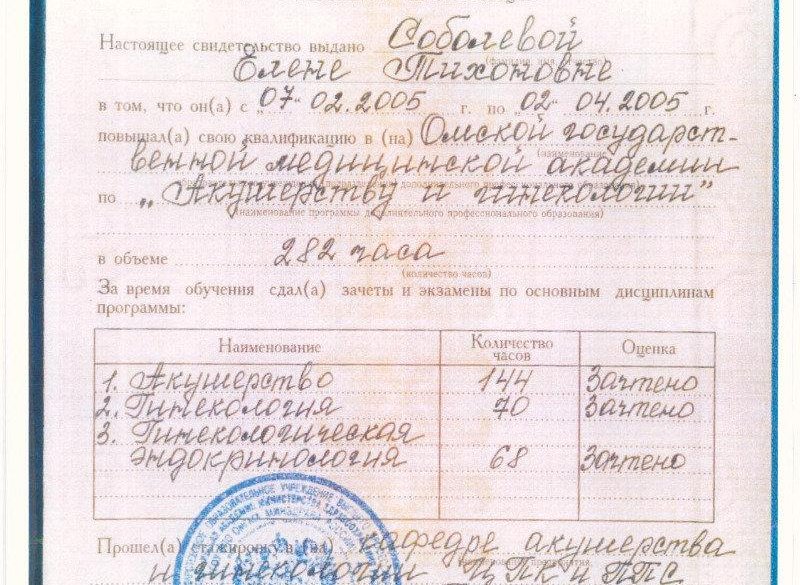 Настоящее свидетельство выдано Соболевой
Елене Тихоновне
в том, что он(а) с „07“ 02.2005 г. по 02 04.2005 г.
повышал(а) свою квалификацию в (на) Омской государст-
(наименование)
венной медицинской академии
по „Акушерству и гинекологии"
(наименование программы дополнительного профессионального образования)
в объеме 282 часа
(количество часов)
За время обучения сдал(а) зачеты и экзамены по основным дисциплинам
программы:
Наименование Количество часов Оценка
1. Акушерство 144 Зачтено
2. Гинекология 70 Зачтено
3. Гинекологическая
эндокринология 68 Зачтено
Прошел(а) стажировку в (на) кафедре акушерства
и гинекологии ЦПК и ППС